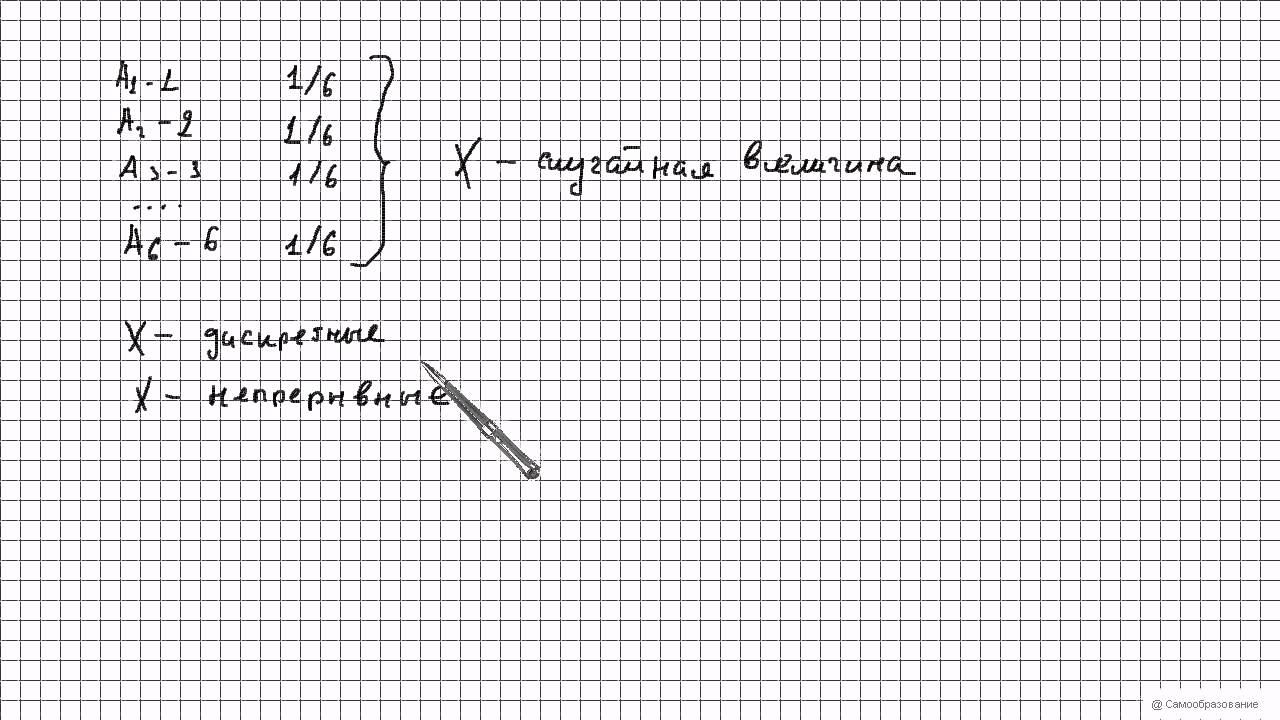 A1 - 1 1/6
A2 - 2 1/6
A3 - 3 1/6
X - случайная величина
....
A6 - 6 1/6
X - дискретные
X - непрерывные
@ Самообразование